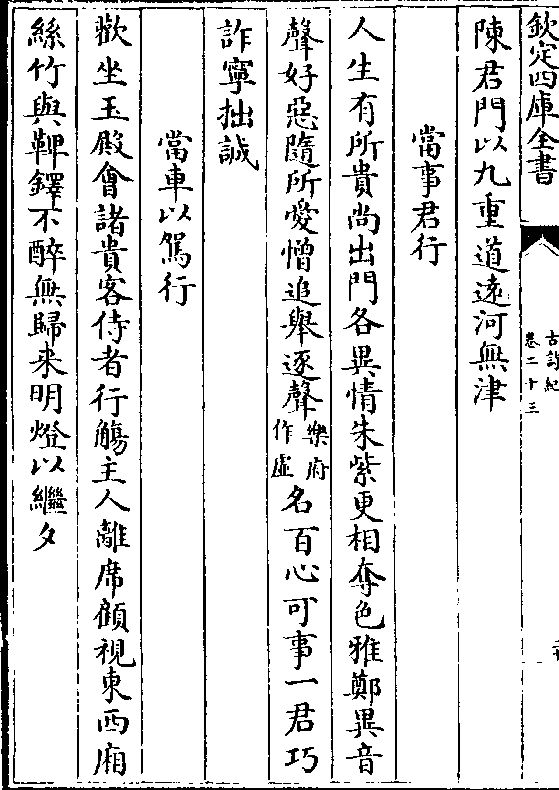 欽定四庫全書
古詩紀
卷二十三
陳君門以九重道遠河無津
當事君行
人生有所貴尚出門各異情朱紫更相奪色雅鄭異音
聲好惡隨所愛憎追舉逐聲樂府作虛名百心可事一君巧
詐寧拙誠
當車以駕行
歡坐玉殿會諸貴客侍者行觴主人離席顧視東西廂
絲竹與鞞鐸不醉無歸来明燈以繼夕